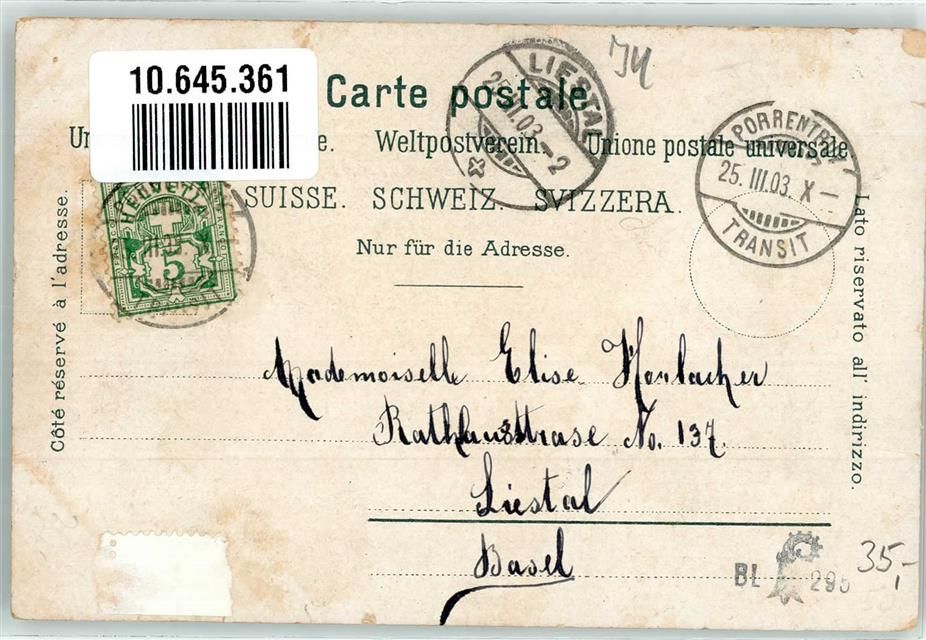 10.645.361
Carte postale
Weltpostverein. Unione postale universale
SUISSE. SCHWEIZ. SVIZZERA.
Nur für die Adresse.
LIESTAL
25.III.03.-2
PORRENTRUY
25.III.03. X-
TRANSIT
HELVETIA
5
Côté réservé à l'adresse.
Lato riservato all' indirizzo.
Mademoiselle Elise Horlacher
Rathausstrase No. 137.
Liestal
Basel
BL 295
35,-